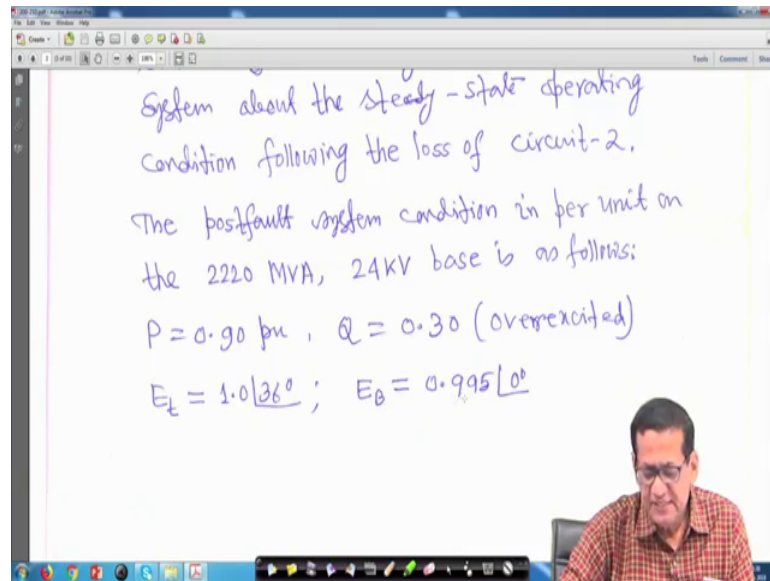 File Edit View Window Help
Create
Tools Comment Share
system about the steady-state operating
condition following the loss of circuit-2.
The postfault system condition in per unit on
the 2220 MVA, 24KV base is as follows:
P = 0.90 pu, Q = 0.30 (overexcited)
E_t = 1.0∠36°; E_B = 0.995∠0°